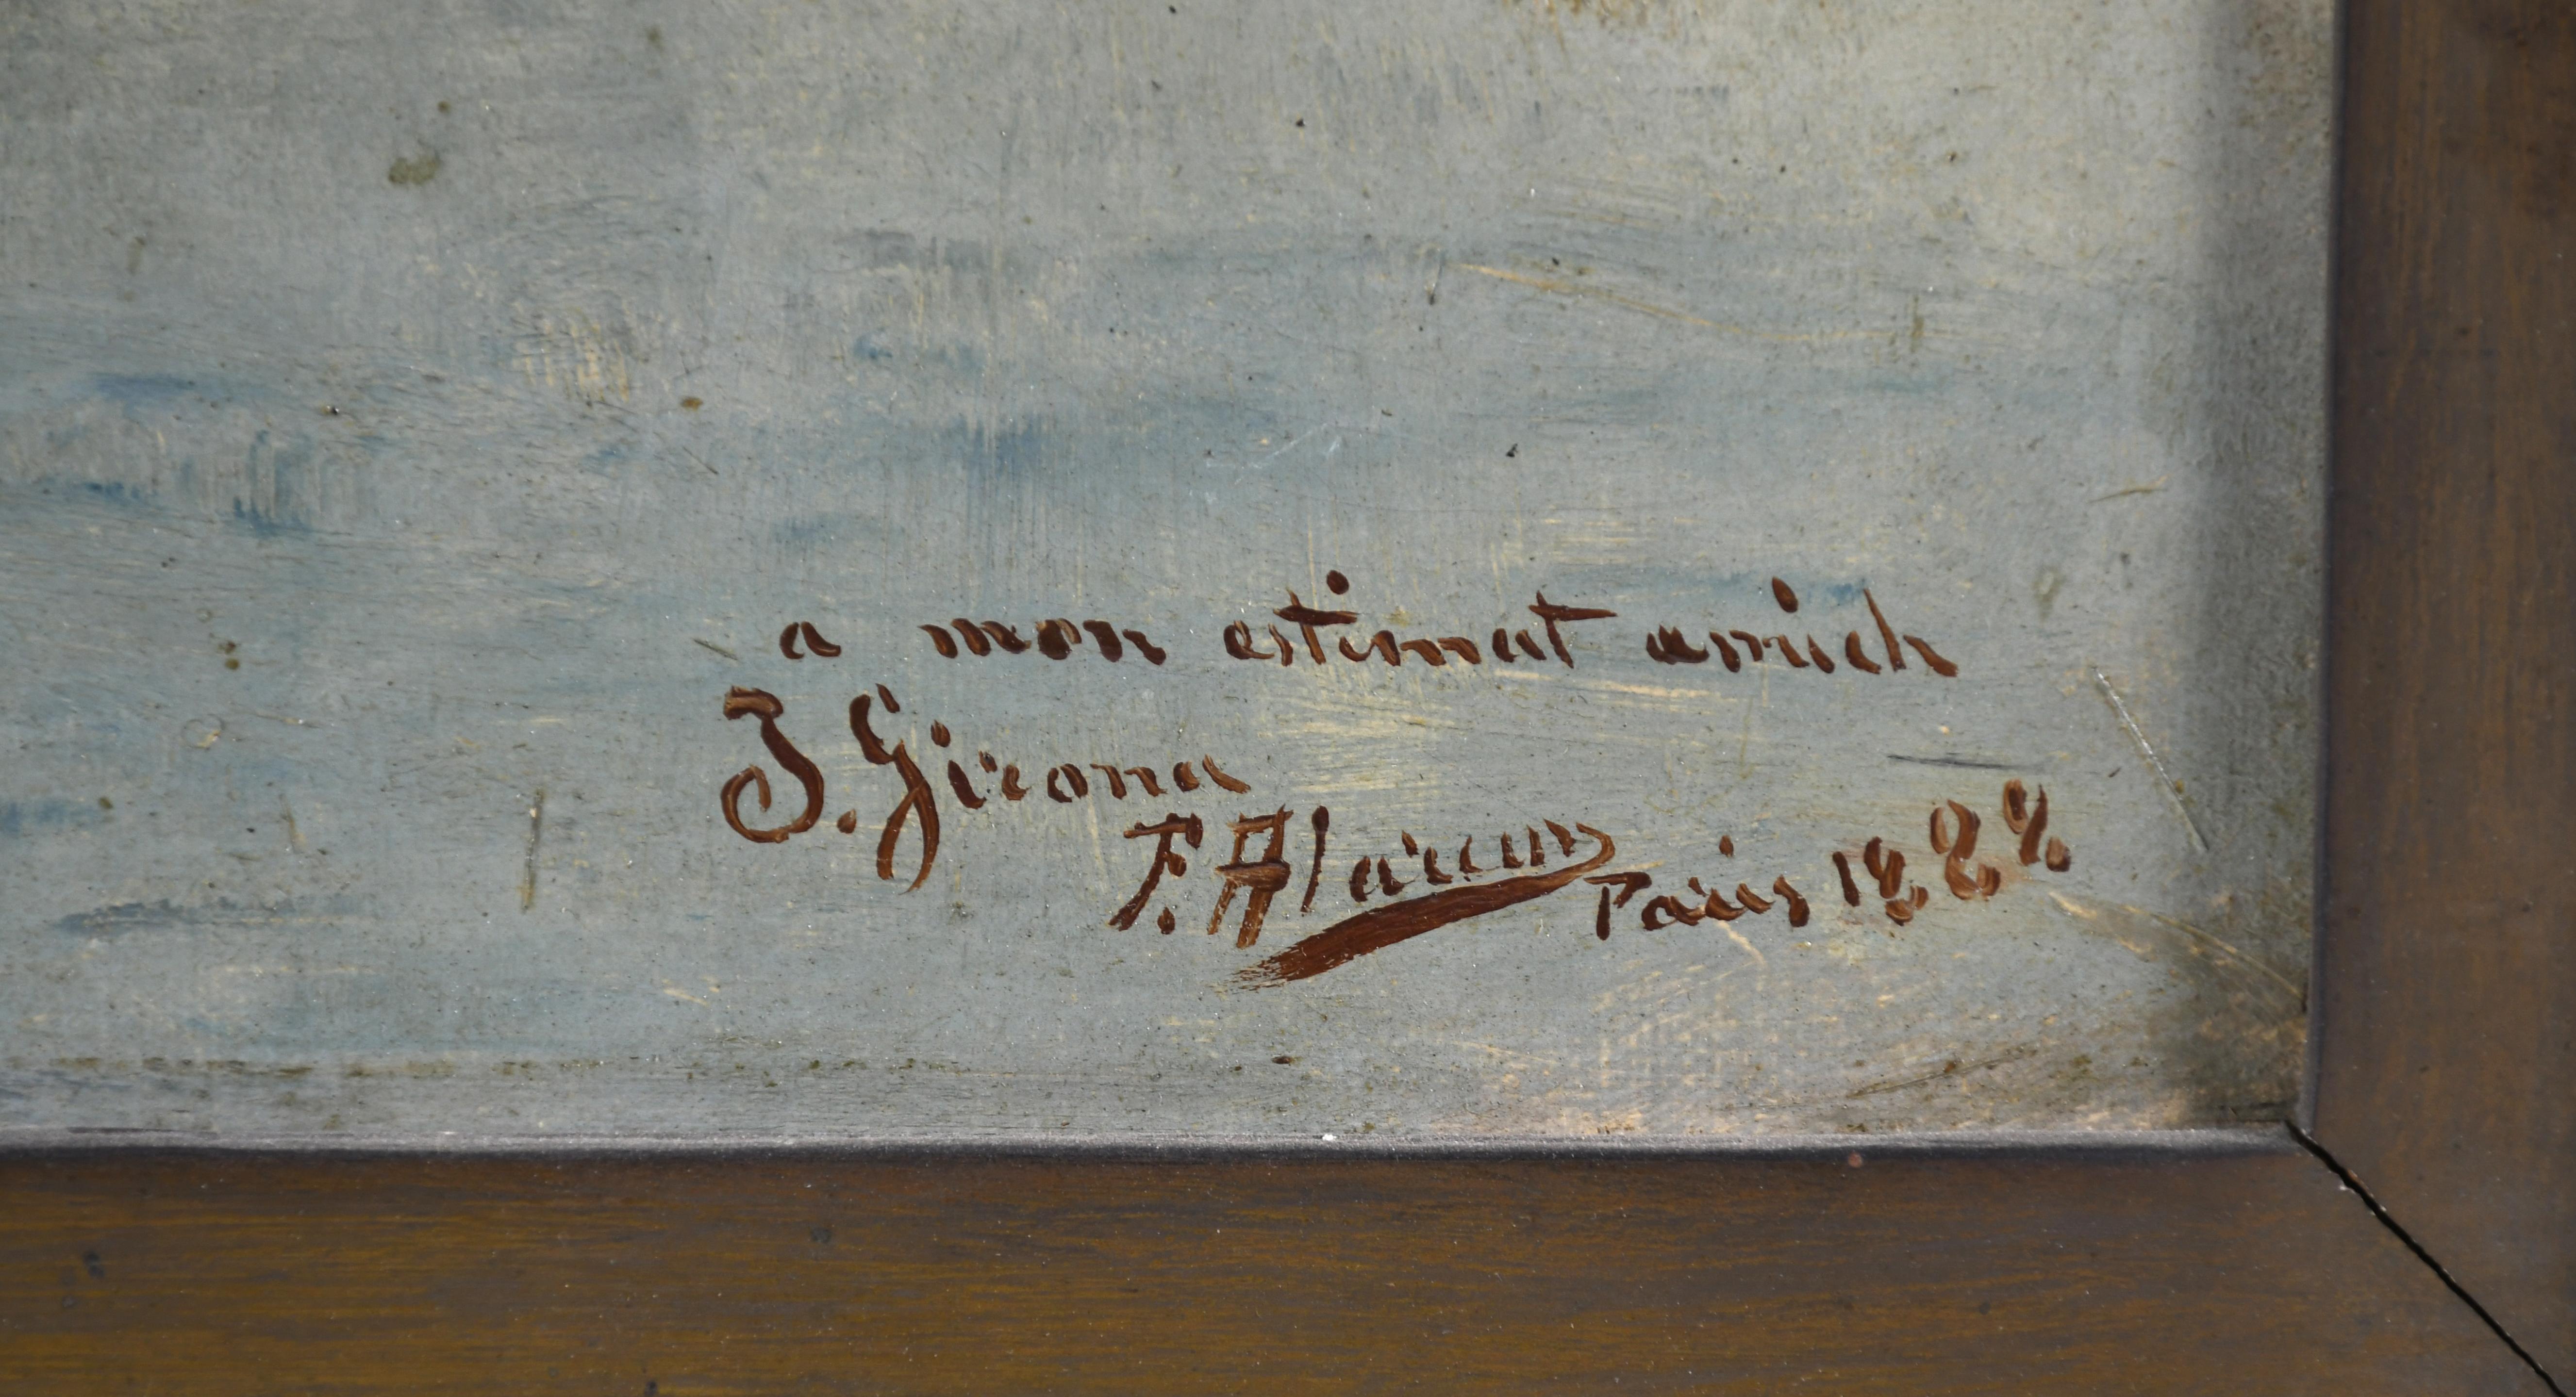 a mon estimat amich
J. Girona
F. Alarcon Paris 1882